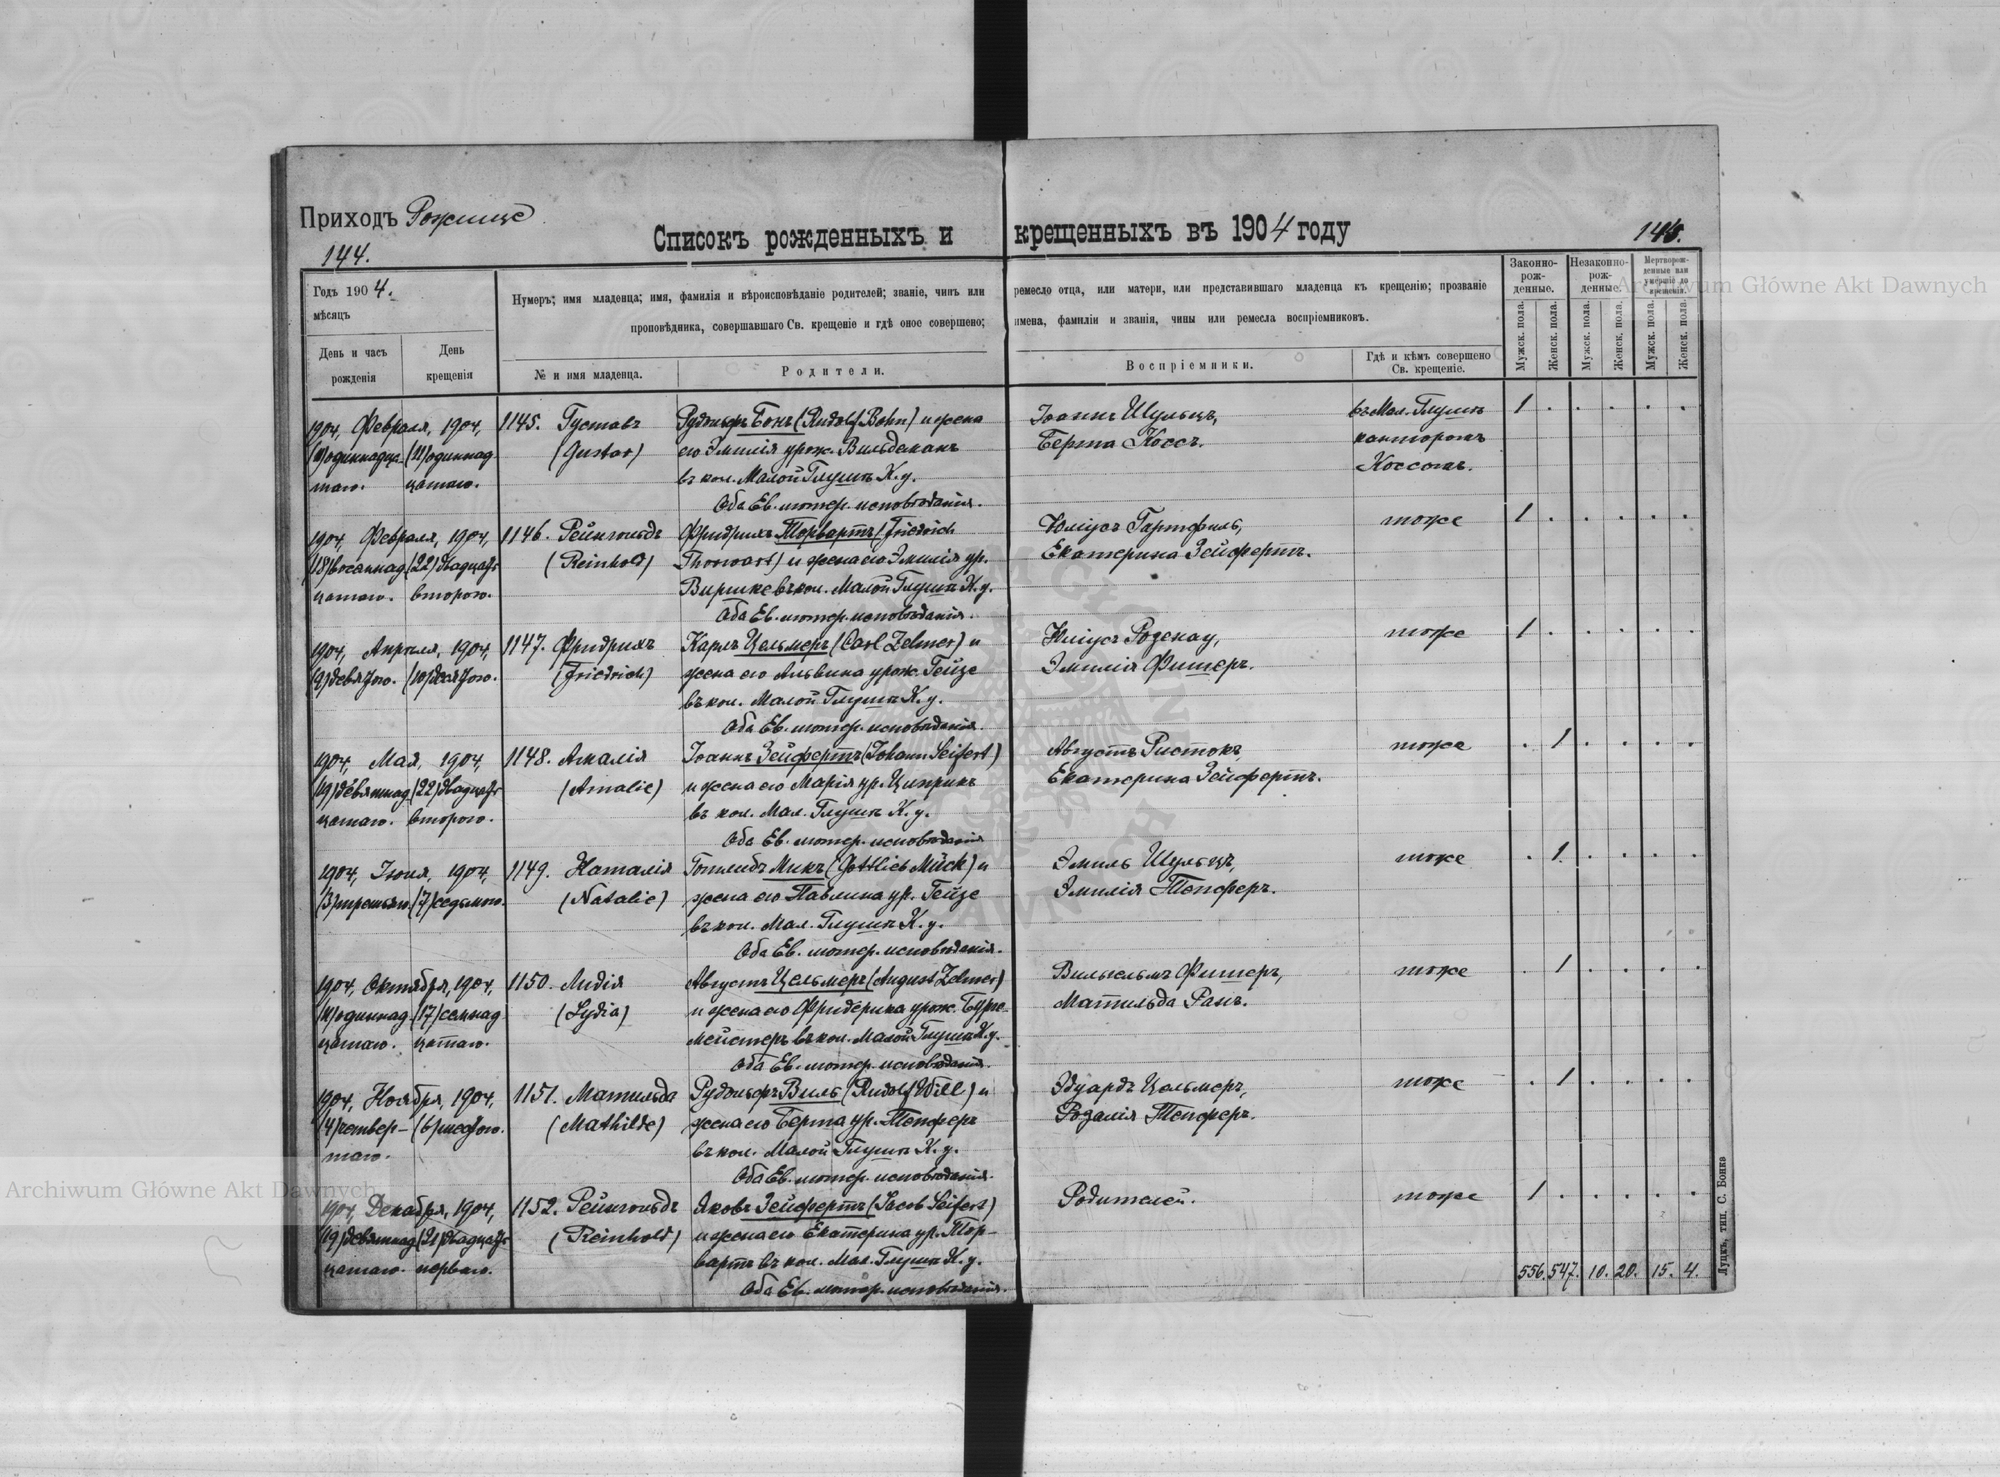 Приходъ Рожище
144.
Списокъ рожденныхъ и крещенныхъ въ 1904 году
145.
Годъ 1904.
мѣсяцъ
День и часъ рожденія
День крещенія
Нумеръ; имя младенца; имя, фамилія и вѣроисповѣданіе родителей; званіе, чинъ или ремесло отца, или матери, или представившаго младенца къ крещенію; прозваніе
проповѣдника, совершавшаго Св. крещеніе и гдѣ оное совершено; имена, фамиліи и званія, чины или ремесла воспріемниковъ.
№ и имя младенца.
Родители.
Воспріемники.
Гдѣ и кѣмъ совершено Св. крещеніе.
Законно-рож-денные.
Незаконно-рож-денные.
Мертворож-денные или умершіе до крещенія.
Мужск. пола.
Женск. пола.
Мужск. пола.
Женск. пола.
Мужск. пола.
Женск. пола.
1904, Февраля, 1904, 1145. Густавъ Рудольфъ Бонъ (Rudolf Bohn) и жена Іоаннъ Шульцъ, въ Мал. Глушѣ 1
(11) одиннадца- (11) одиннад- (Gustav) его Эмилія урож. Вильдеманъ Берта Коссъ. канторомъ
таго. цатаго. въ кол. Малой Глушѣ К. у. Коссомъ.
Оба Ев. лютер. исповѣданія.
1904, Февраля, 1904, 1146. Рейнгольдъ Фридрихъ Торвартъ (Friedrich Юліусъ Гартфиль, тоже 1
(18) восемнад- (22) двадцать (Reinhold) Thorwart) и жена его Эмилія ур. Екатерина Зейфертъ.
цатаго. второго. Виршке въ кол. Малой Глушѣ К. у.
Оба Ев. лютер. исповѣданія.
1904, Апрѣля, 1904, 1147. Фридрихъ Карлъ Цельмеръ (Carl Zelmer) и Юліусъ Розенау, тоже 1
(9) девятого. (10) десятого. (Friedrich) жена его Альвина урож. Гейзе Эмилія Фишеръ.
въ кол. Малой Глушѣ К. у.
Оба Ев. лютер. исповѣданія.
1904, Мая, 1904, 1148. Амалія Іоаннъ Зейфертъ (Johann Seifert) Августъ Ристокъ, тоже 1
(19) девятнад- (22) двадцать (Amalie) и жена его Марія ур. Циприкъ Екатерина Зейфертъ.
цатаго. второго. въ кол. Мал. Глушѣ К. у.
Оба Ев. лютер. исповѣданія
1904, Іюня, 1904, 1149. Наталія Готлибъ Микъ (Gottlieb Mück) и Эмиль Шульцъ, тоже 1
(3) третьяго. (7) седьмого. (Natalie) жена его Павлина ур. Гейзе Эмилія Тепферъ.
въ кол. Мал. Глушѣ К. у.
Оба Ев. лютер. исповѣданія.
1904, Октября, 1904, 1150. Лидія Августъ Цельмеръ (August Zelmer) Вильгельмъ Фишеръ, тоже 1
(11) одиннад- (17) семнад- (Lydia) и жена его Фридерика урож. Бурге- Матильда Ранъ.
цатаго. цатаго. мейстеръ въ кол. Малой Глушѣ К. у.
Оба Ев. лютер. исповѣданія.
1904, Ноября, 1904, 1151. Матильда Рудольфъ Виль (Rudolf Will) и Эдуардъ Цельмеръ, тоже 1
(4) четвер- (6) шестого. (Mathilde) жена его Берта ур. Тепферъ Розалія Тепферъ.
таго. въ кол. Малой Глушѣ К. у.
Оба Ев. лютер. исповѣданія.
1904, Декабря, 1904, 1152. Рейнгольдъ Яковъ Зейфертъ (Jacob Seifert) Родителей. тоже 1
(19) девятнад- (21) двадцать (Reinhold) и жена его Екатерина ур. Тор-
цатаго. перваго. вартъ въ кол. Мал. Глушѣ К. у.
Оба Ев. лютер. исповѣданія.
556. 547. 10. 20. 15. 4.
Луцкъ, тип. С. Бонка
Archiwum Główne Akt Dawnych
Archiwum Główne Akt Dawnych